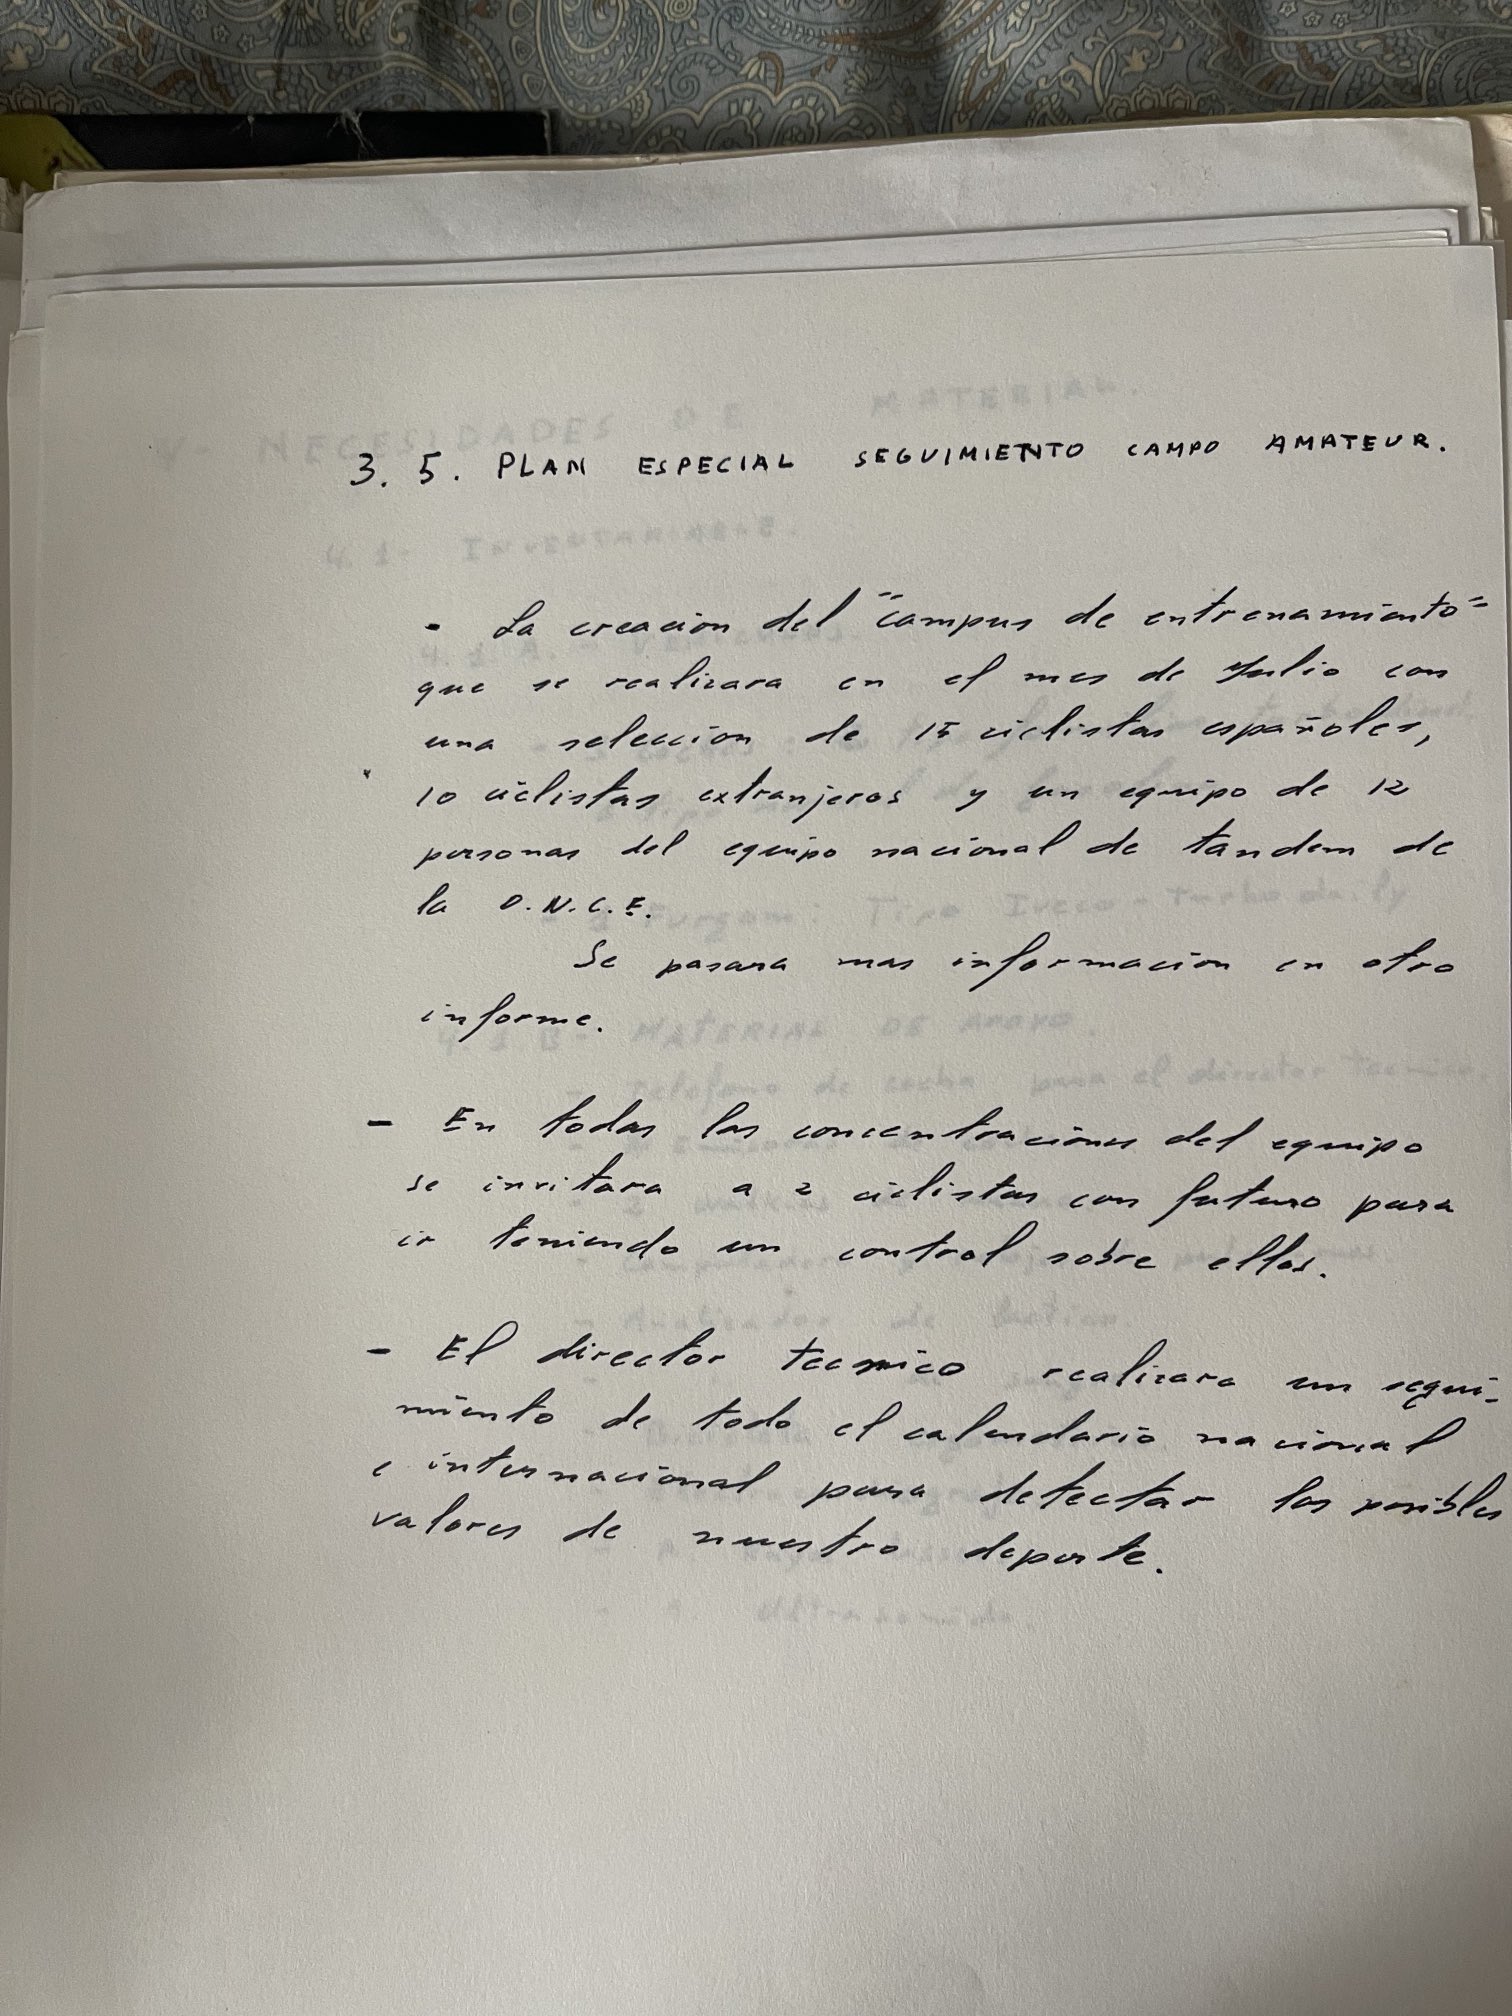 3. 5. PLAN ESPECIAL SEGUIMIENTO CAMPO AMATEUR.
- La creacion del "campus de entrenamiento"
que se realizara en el mes de Julio con
una seleccion de 15 ciclistas españoles,
10 ciclistas extranjeros y un equipo de 12
personas del equipo nacional de tandem de
la O.N.C.E.
Se pasara mas informacion en otro
informe.
- En todas las concentraciones del equipo
se invitara a 2 ciclistas con futuro para
ir teniendo un control sobre ellos.
- El director tecnico realizara un segui-
miento de todo el calendario nacional
e internacional para detectar los posibles
valores de nuestro deporte.